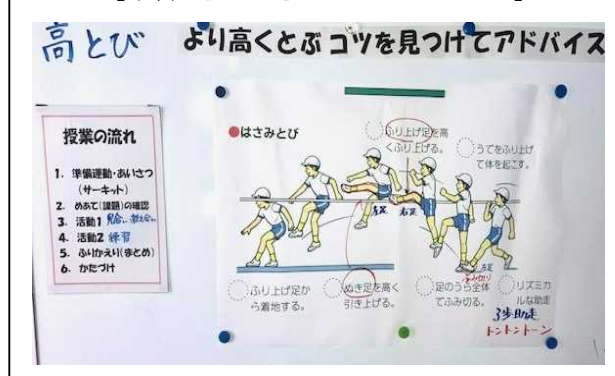 高とび
より高くとぶコツを見つけてアドバイス
授業の流れ
1. 準備運動・あいさつ
(サーキット)
2. めあて(課題)の確認
3. 活動1
4. 活動2 練習
5. ふりかえり(まとめ)
6. かたづけ
●はさみとび
ふり上げ足を高
くふり上げる。
うでをふり上げ
て体を起こす。
左足
右足
ふり上げ足か
ら着地する。
ぬき足を高く
引き上げる。
足のうら全体
でふみ切る。
リズミカ
ルな助走
3歩助走
トントトーン